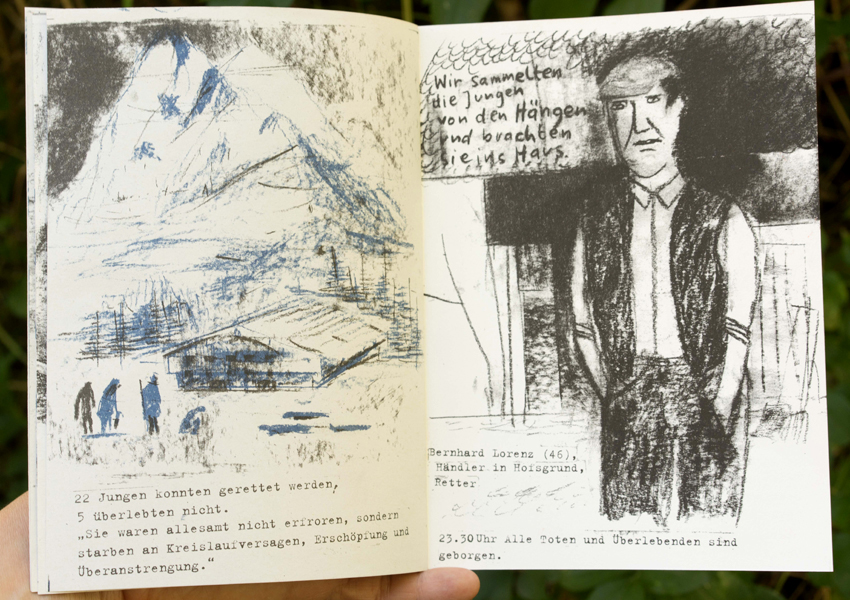 22 Jungen konnten gerettet werden,
5 überlebten nicht.
„Sie waren allesamt nicht erfroren, sondern
starben an Kreislaufversagen, Erschöpfung und
Überanstrengung."
Wir sammelten
die Jungen
von den Hängen
und brachten
sie ins Haus.
Bernhard Lorenz (46),
Händler in Hofsgrund,
Retter
23.30Uhr Alle Toten und Überlebenden sind
geborgen.